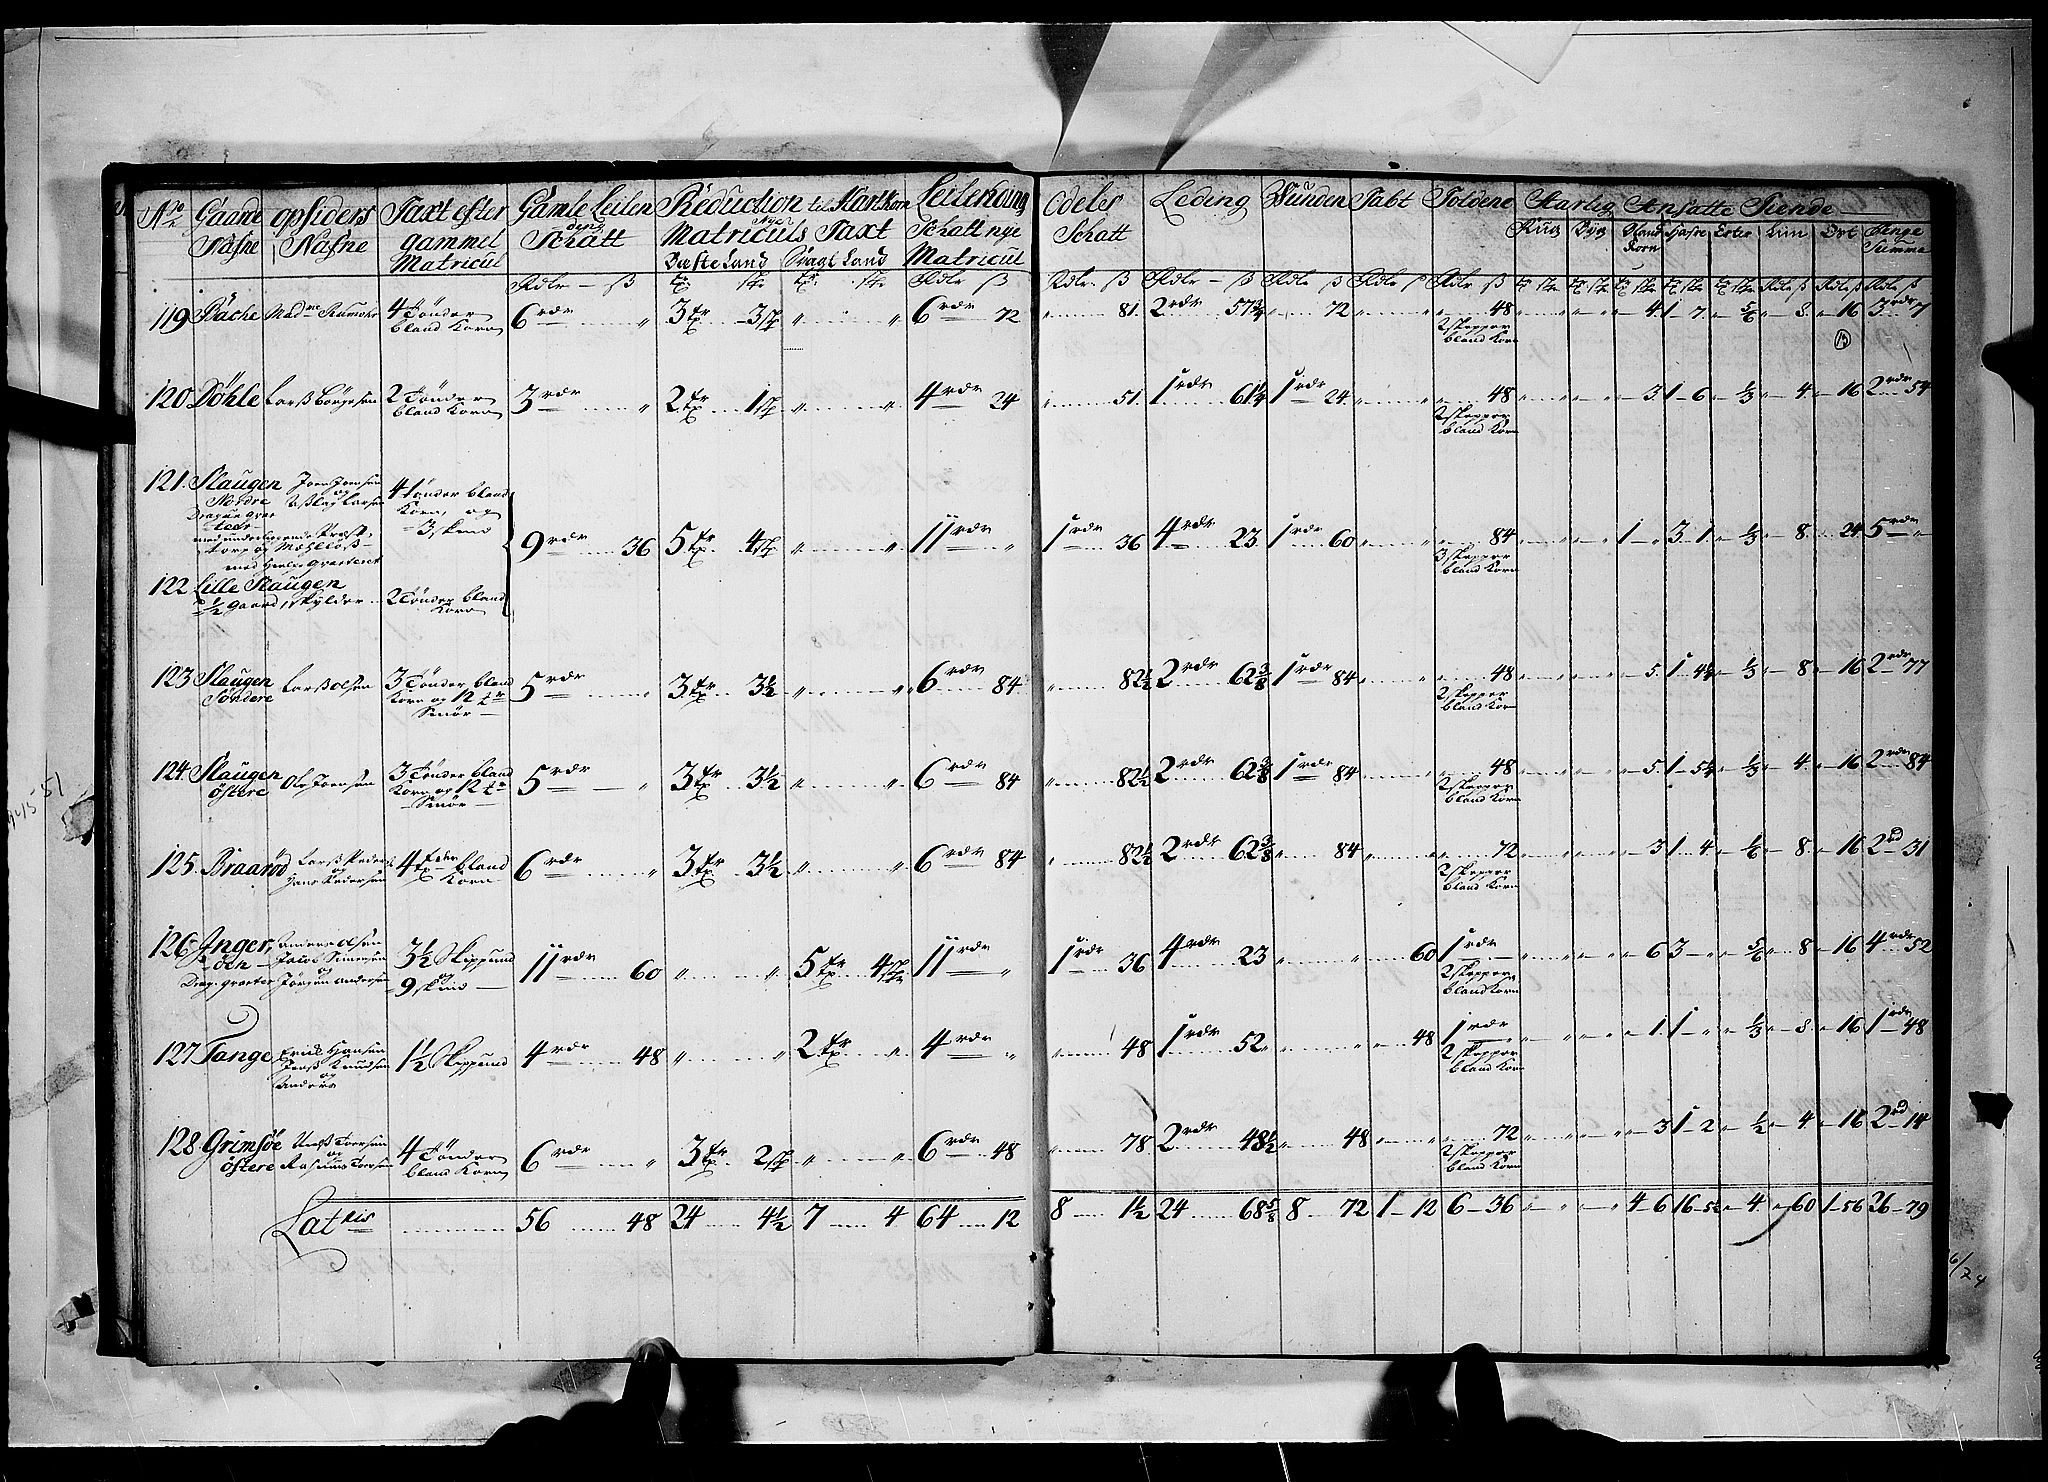 No Gaarde Nafne opsiders Nafne Taxt efter gammel Matricul Gamle Leilendings Schatt Reduction til Hartkorn Nye Matriculs Taxt Leilending Schatt nye Matricul
Bæste Land Svagt Land
Rdlr ß Rdlr ß
Odels Schatt Leding Wunden Tabt Foldene Aarlig Ansatte Tiende
Rug Byg Bland Korn Hafre Erter Liin Ost Penge Summa
119 Bache Mad me Rumohr 4 Tønder bland Korn 6 rdr " 3 tr 3 sp " " 6 rdr 72
" 81. 2 rdr 57¾ " 72 " " 48 2 skepper bland Korn 4. 1 7. ⅚ 8. 16 3 rdr 7
120 Döhle Larß Börgesen 2 Tønder bland Korn 3 rdr " 2 tr 1 sp " " 4 rdr 24
" 51. 1 rdr 61¼ 1 rdr 24. " " 48 2 skepper bland Korn 3. 1 6 ⅓ 4. 16 2 rdr 54
121. Slaugen Nordre 4 Tønder bland Korn, og 3 skind
med underliggende
122 Lille Slaugen ½ gaard, skylder 2 Tønder bland Korn
9 rdr 36 5 tr 4 sp " " 11 rdr "
1 rdr 36 4 rdr 23 1 rdr 60 " " 84 3 skepper bland Korn 1 " 3 1 ⅓ 8. 24 5 rdr "
123 Slaugen Söndere Larß olsen 3 Tønder bland Korn og 12 tr Smør 5 rdr " 3 tr 3½ " " 6 rdr 84
" 82½ 2 rdr 62⅜ 1 rdr 84 " " 48 2 skepper bland Korn 5. 1 4½ ⅓ 8 16 2 rdr 77
124. Slaugen östere Ole Joensen 3 Tønder bland Korn og 12 tr Smør 5 rdr " 3 tr 3½ " " 6 rdr 84
" 82½ 2 rdr 62⅜ 1 rdr 84 " " 48 2 skepper bland Korn 5. 1 5½ ⅓ 4. 16 2 rdr 84
125. Braarød Larß Peders og Hans Pedersen 4 bland Korn 6 rdr " 3 tr 3½ " " 6 rdr 84
" 82½ 2 rdr 62⅜ " 84 " " 72 2 skepper bland Korn 3 1 4 ⅙ 8 16 2 rd 31
126 Anders olsen Jacob Simensen og Jörgen Andersen 3½ Skippund 9 skind 11 rdr 60 " " 5 tr 4 11 rdr "
1 rdr 36 4 rdr 23 " " 60 1 rdr 2 skepper bland Korn 6 3 ⅚ 8 16 4 rdr 52
127. Tange Erick Hansen Jenß Knudsen og Anders 1½ Skippund 4 rdr 48 " " 2 tr " 4 rdr "
" 48 1 rdr 52 " " 48 1 rdr 2 skepper bland Korn 1. 1 " ⅓ 8. 16 1 rdr 48
128. Grimsöe östere og Rasmus Torsen 4 Tønder bland Korn 6 rdr " 3 tr 2 sp " " 6 rdr 48
" 78 2 rdr 48½ " 48 " " 72 2 skepper bland Korn 3 1 2 ½ 4 16 2 rd 14
Lateris 56 48 24 4½ 7 4 64 12
8 1½ 24 68⅝ 8 72 1 12 6 36 " " 4 6 16 5½ 4 " 60 1 56 26 79